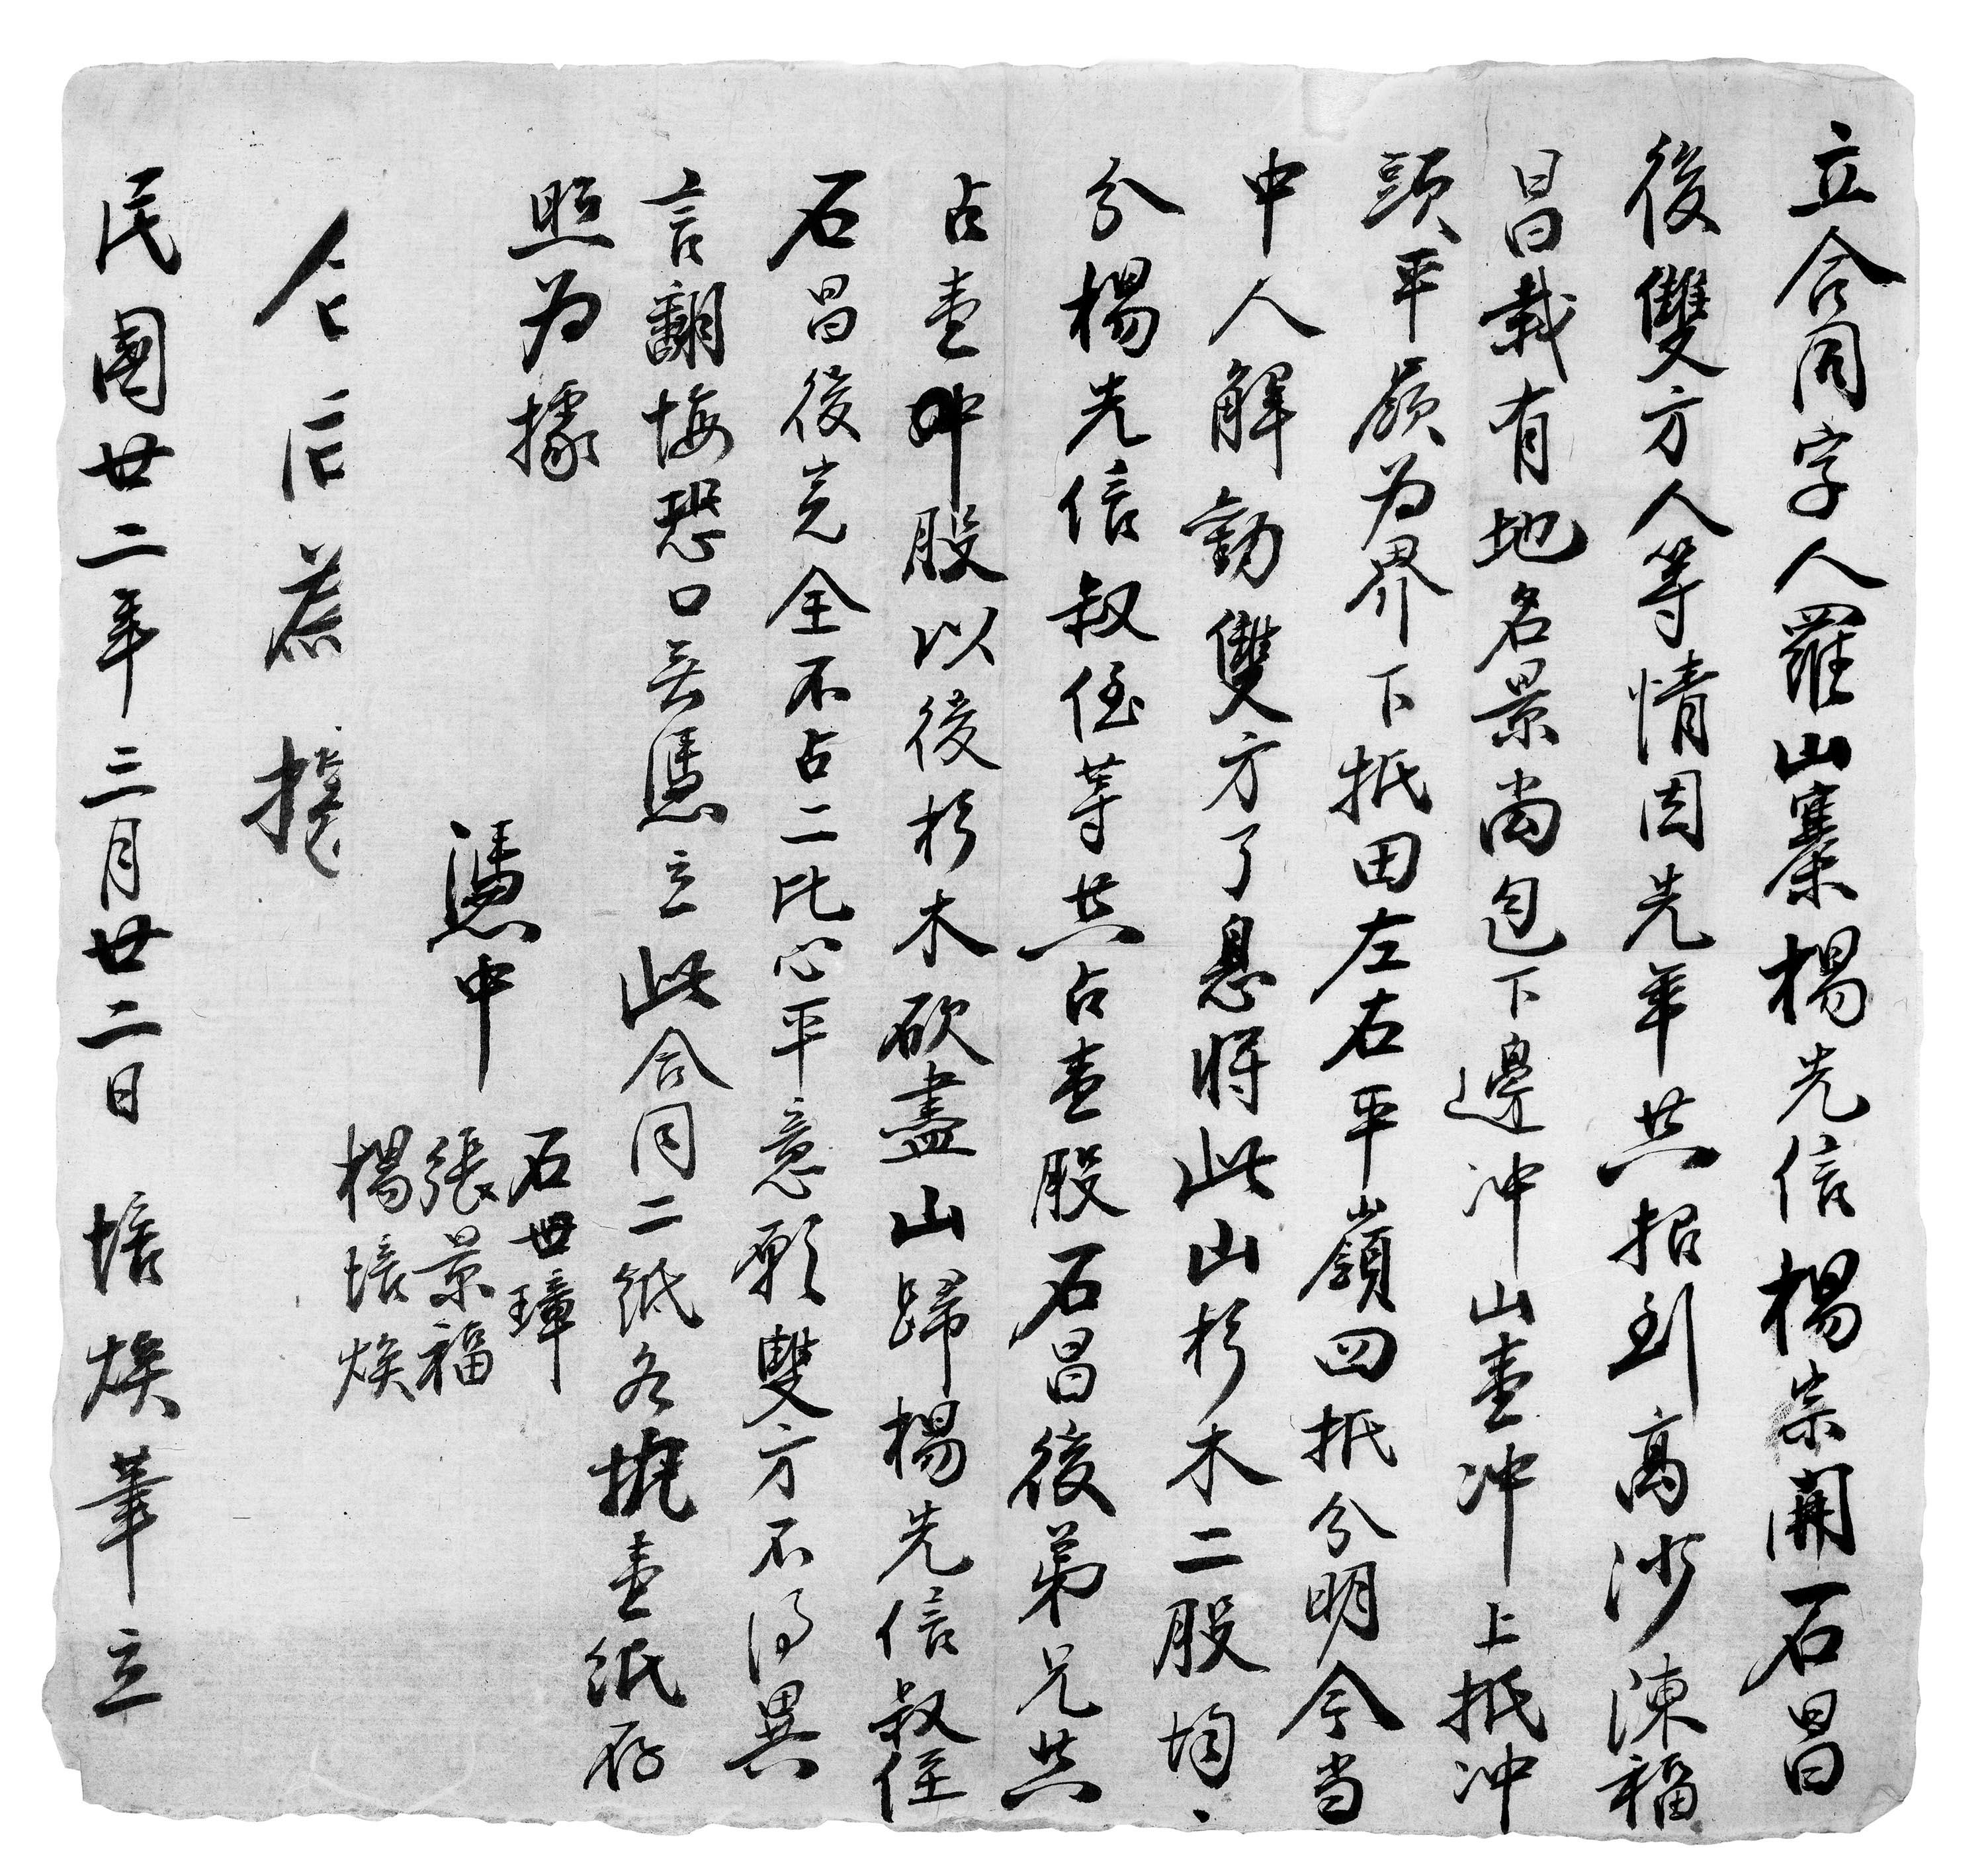 立合同字人羅山寨楊光信楊宗開石昌
後雙方人等情因先年共招到高沙陳福
昌栽有地名景尚包下邊冲山壹冲上抵冲
頭平嶺為界下抵田左右平嶺四抵分明今当
中人解勸雙方了息將此山杉木二股均、
分楊光信叔侄等共占壹股石昌後弟兄共
占壹股以後杉木砍盡山歸楊光信叔侄
石昌後完全不占二比心平意愿雙方不得異
言翻悔恐口無憑立此合同二紙各執壹紙存
照為據
憑中
石世璋
張景福
楊焕
民國廿二年三月廿二日 焕筆立